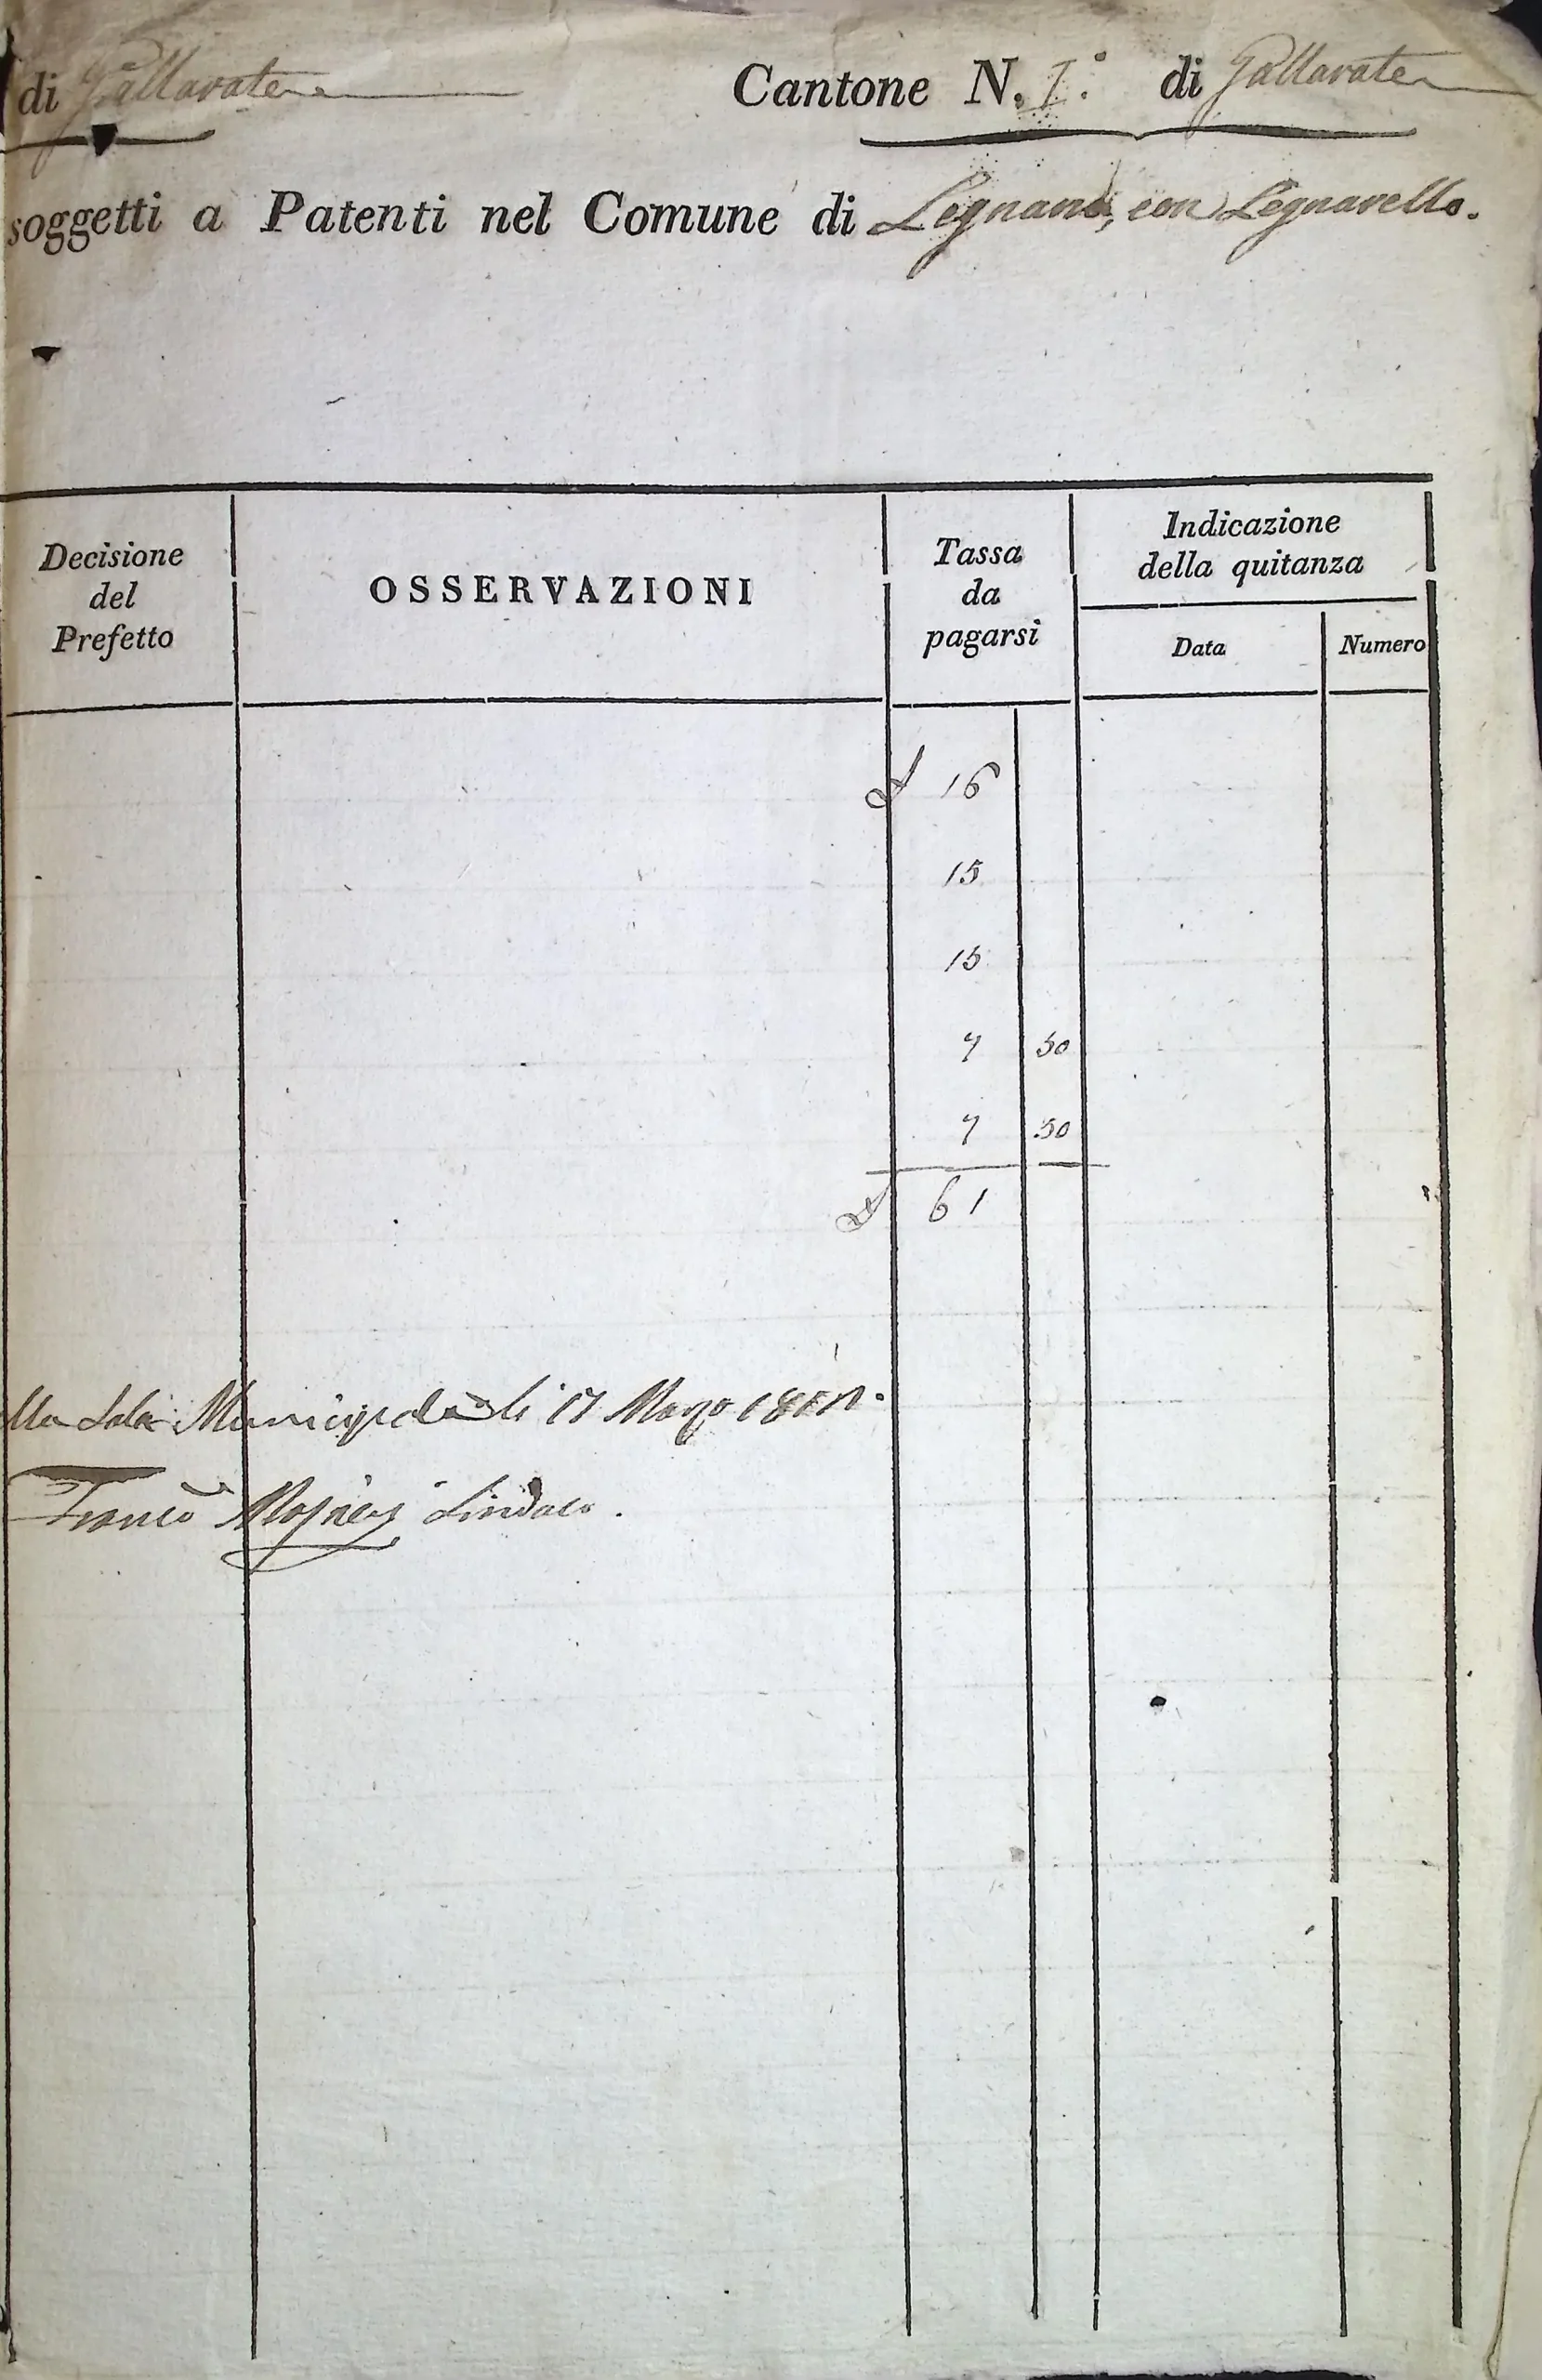 di Gallarate
Cantone N. I.° di Gallarate
soggetti a Patenti nel Comune di Legnano, con Legnarello.
Decisione
del
Prefetto
OSSERVAZIONI
Tassa
da
pagarsi
Indicazione
della quitanza
Data
Numero
16
15
15
7 50
7 50
61
lla Sala Municipale li 17 Marzo
Franco Sindaco.